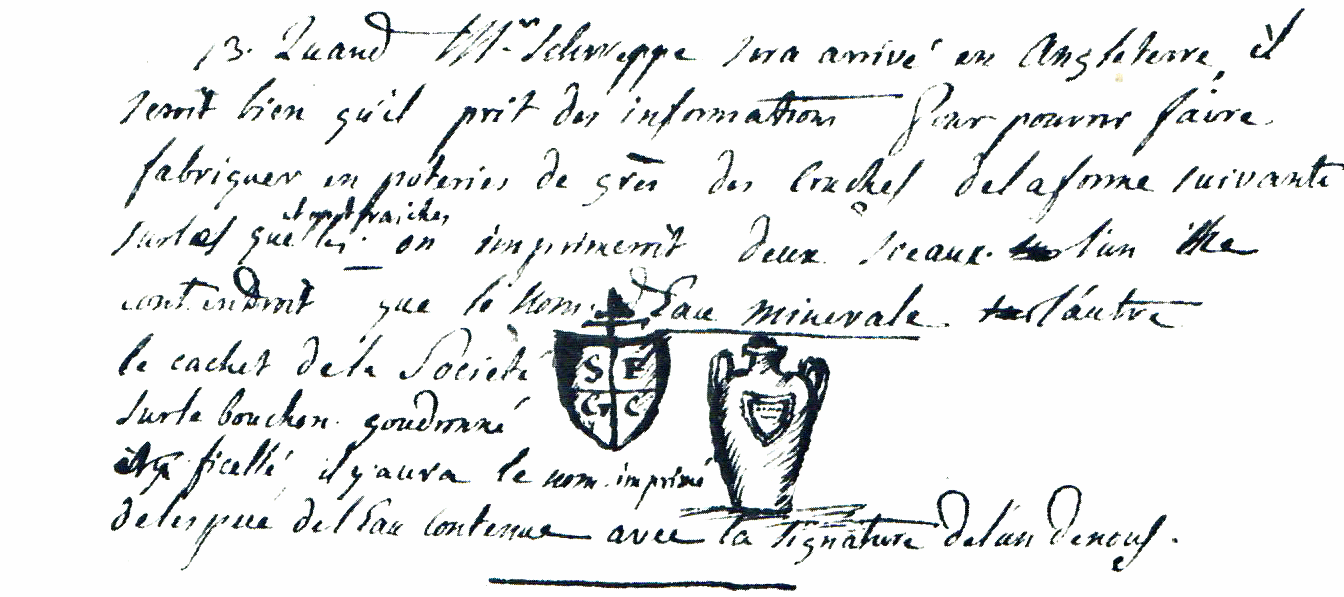 13. Quand Mr. Schweppe sera arrivé en Angleterre, il
seroit bien qu'il prit des informations pour pouvoir faire
fabriquer en poteries de grès des Cruches de la forme suivante
fraiches
sur les quelles on imprimeroit deux sceaux l'un ne
contendroit que le nom d'Eau minerale l'autre
le cachet de la Société
S F
G C
sur le bouchon goudronné
et ficellé, il y aura le nom imprimé
de lespece de l'Eau contenue avec la signature de l'un de nous.